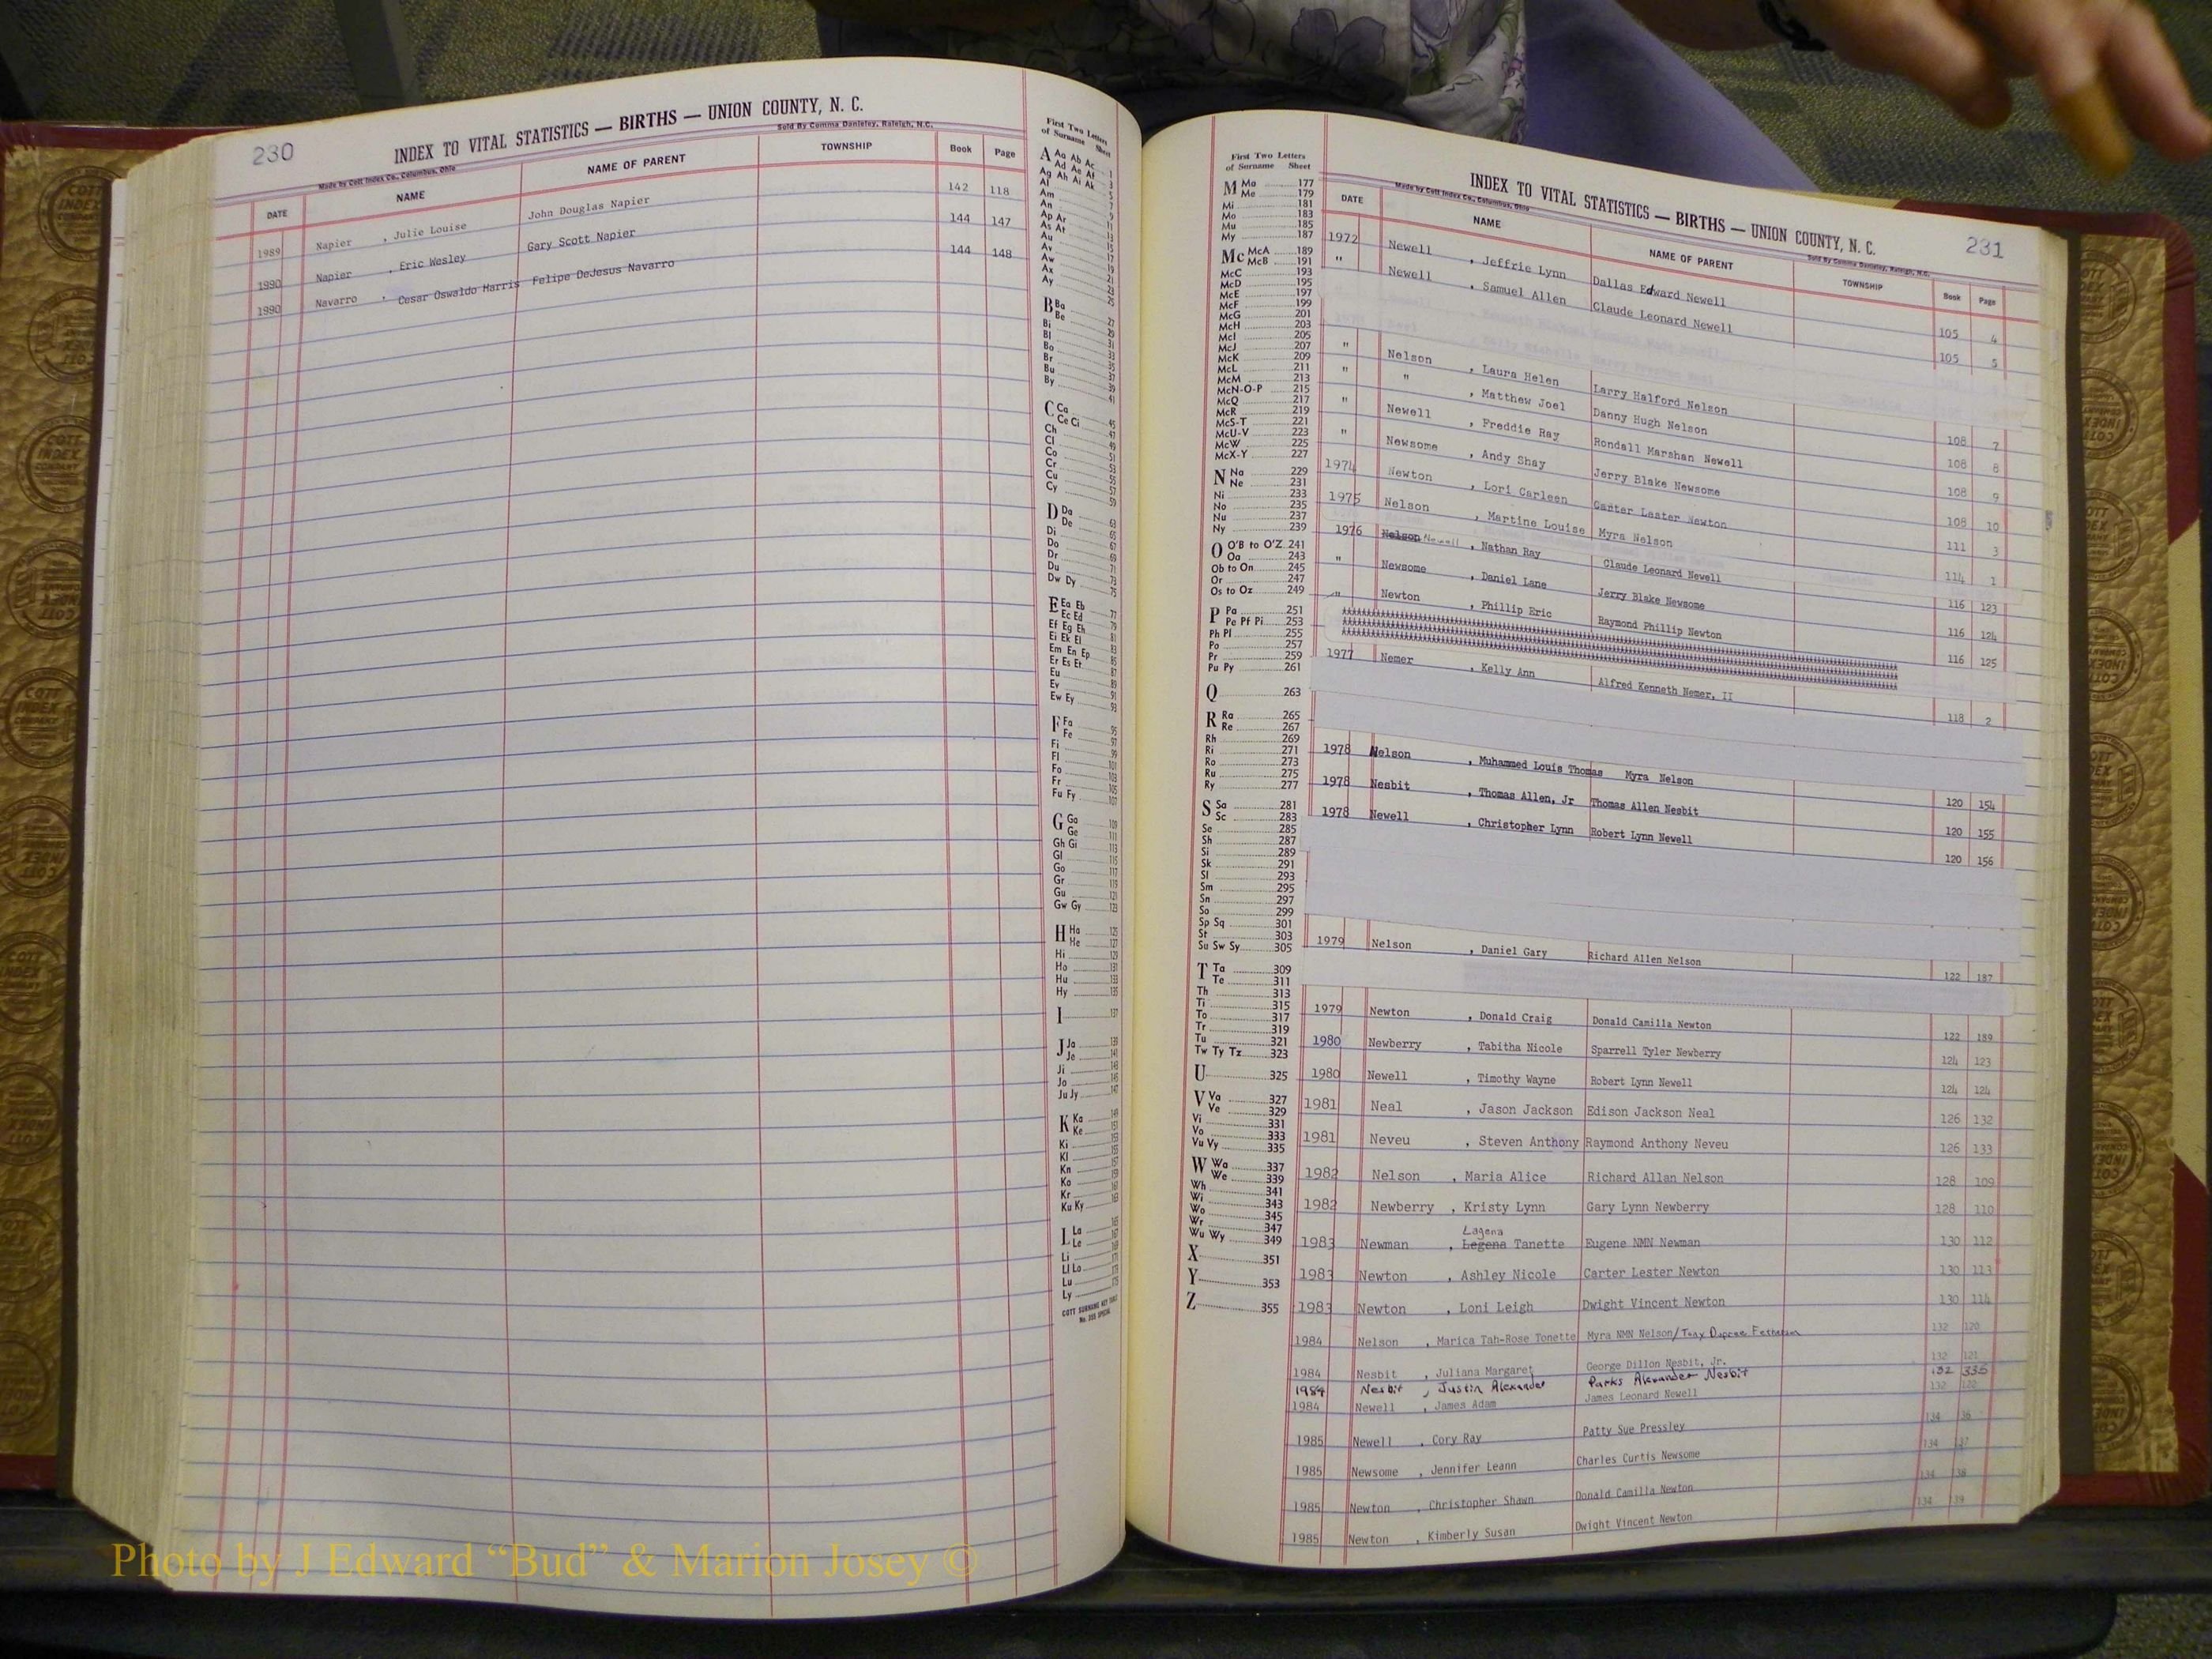 230
INDEX TO VITAL STATISTICS — BIRTHS — UNION COUNTY, N. C.
Made by Cott Index Co., Columbus, Ohio
Sold By Comma Danieley, Raleigh, N.C.
DATE NAME NAME OF PARENT TOWNSHIP Book Page
1989 Napier , Julie Louise John Douglas Napier 142 118
1990 Napier , Eric Wesley Gary Scott Napier 144 147
1990 Navarro , Cesar Oswaldo Harris Felipe DeJesus Navarro 144 148
First Two Letters
of Surname Sheet
A Aa Ab Ac 1
Ad Ae Af 3
Ag Ah Ai Ak 5
Al 7
Am 9
An 11
Ap Ar 13
As At 15
Au 17
Av 19
Aw 21
Ax 23
Ay 25
B Ba 27
Be 29
Bi 31
Bl 33
Bo 35
Br 37
Bu 39
By 41
C Ca 45
Ce Ci 47
Ch 49
Cl 51
Co 53
Cr 55
Cu 57
Cy 59
D Da 63
De 65
Di 67
Do 69
Dr 71
Du 73
Dw Dy 75
E Ea Eb 77
Ec Ed 79
Ef Eg Eh 81
Ei Ek El 83
Em En Ep 85
Er Es Et 87
Eu 89
Ev 91
Ew Ey 93
F Fa 95
Fe 97
Fi 99
Fl 101
Fo 103
Fr 105
Fu Fy 107
G Ga 109
Ge 111
Gh Gi 113
Gl 115
Go 117
Gr 119
Gu 121
Gw Gy 123
H Ha 125
He 127
Hi 129
Ho 131
Hu 133
Hy 135
I 137
J Ja 139
Je 141
Ji 143
Jo 145
Ju Jy 147
K Ka 149
Ke 151
Ki 153
Kl 155
Kn 157
Ko 159
Kr 161
Ku Ky 163
L La 165
Le 167
Li 169
Ll Lo 171
Lu 173
Ly 175
COTT SURNAME KEY TABLE
SPECIAL
First Two Letters
of Surname Sheet
M Ma 177
Me 179
Mi 181
Mo 183
Mu 185
My 187
Mc McA 189
McB 191
McC 193
McD 195
McE 197
McF 199
McG 201
McH 203
McI 205
McJ 207
McK 209
McL 211
McM 213
McN-O-P 215
McQ 217
McR 219
McS-T 221
McU-V 223
McW 225
McX-Y 227
N Na 229
Ne 231
Ni 233
No 235
Nu 237
Ny 239
O O'B to O'Z 241
Oa 243
Ob to On 245
Or 247
Os to Oz 249
P Pa 251
Pe Pf Pi 253
Ph Pl 255
Po 257
Pr 259
Pu Py 261
Q 263
R Ra 265
Re 267
Rh 269
Ri 271
Ro 273
Ru 275
Ry 277
S Sa 281
Sc 283
Se 285
Sh 287
Si 289
Sk 291
Sl 293
Sm 295
Sn 297
So 299
Sp Sq 301
St 303
Su Sw Sy 305
T Ta 309
Te 311
Th 313
Ti 315
To 317
Tr 319
Tu 321
Tw Ty Tz 323
U 325
V Va 327
Ve 329
Vi 331
Vo 333
Vu Vy 335
W Wa 337
We 339
Wh 341
Wi 343
Wo 345
Wr 347
Wu Wy 349
X 351
Y 353
Z 355
INDEX TO VITAL STATISTICS — BIRTHS — UNION COUNTY, N. C.
231
Made by Cott Index Co., Columbus, Ohio
Sold By Comma Danieley, Raleigh, N.C.
DATE NAME NAME OF PARENT TOWNSHIP Book Page
1972 Newell , Jeffrie Lynn Dallas Edward Newell 105 4
" Newell , Samuel Allen Claude Leonard Newell 105 5
" Nelson , Laura Helen Larry Halford Nelson 108 7
" " , Matthew Joel Danny Hugh Nelson 108 8
" Newell , Freddie Ray Rondall Marshan Newell 108 9
" Newsome , Andy Shay Jerry Blake Newsome 108 10
1974 Newton , Lori Carleen Carter Lester Newton 111 3
1975 Nelson , Martine Louise Myra Nelson 114 1
1976 Nelson Newell , Nathan Ray Claude Leonard Newell 116 123
" Newsome , Daniel Lane Jerry Blake Newsome 116 124
" Newton , Phillip Eric Raymond Phillip Newton 116 125
1977 Nemer , Kelly Ann Alfred Kenneth Nemer, II 118 2
1978 Nelson , Muhammed Louis Thomas Myra Nelson 120 154
1978 Nesbit , Thomas Allen, Jr Thomas Allen Nesbit 120 155
1978 Newell , Christopher Lynn Robert Lynn Newell 120 156
1979 Nelson , Daniel Gary Richard Allen Nelson 122 187
1979 Newton , Donald Craig Donald Camilla Newton 122 189
1980 Newberry , Tabitha Nicole Sparrell Tyler Newberry 124 123
1980 Newell , Timothy Wayne Robert Lynn Newell 124 124
1981 Neal , Jason Jackson Edison Jackson Neal 126 132
1981 Neveu , Steven Anthony Raymond Anthony Neveu 126 133
1982 Nelson , Maria Alice Richard Allan Nelson 128 109
1982 Newberry , Kristy Lynn Gary Lynn Newberry 128 110
Lagena
1983 Newman , Legena Tanette Eugene NMN Newman 130 112
1983 Newton , Ashley Nicole Carter Lester Newton 130 113
1983 Newton , Loni Leigh Dwight Vincent Newton 130 114
1984 Nelson , Marica Tah-Rose Tonette Myra NMN Nelson/Tony 132 120
1984 Nesbit , Juliana Margaret George Dillon Nesbit, Jr. 132 121
1984 Nesbit , Justin Alexander Parks Alexander Nesbit 132 335
1984 Newell , James Adam James Leonard Newell 132 122
1985 Newell , Cory Ray Patty Sue Pressley 134 136
1985 Newsome , Jennifer Leann Charles Curtis Newsome 134 137
1985 Newton , Christopher Shawn Donald Camilla Newton 134 138
1985 Newton , Kimberly Susan Dwight Vincent Newton 134 139
Photo by J Edward “Bud” & Marion Josey ©